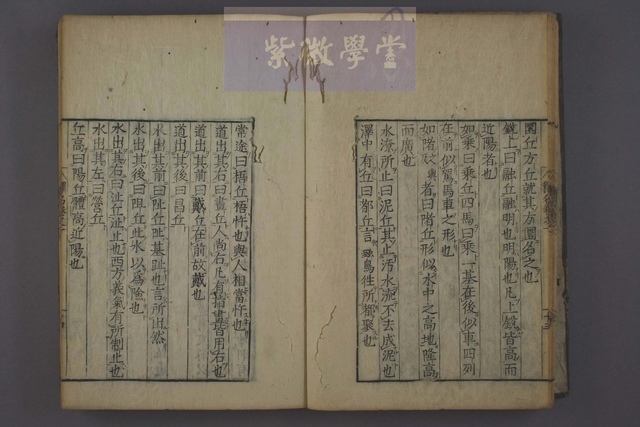 紫微學堂
圜丘方丘就其方圜名之也
銳上曰融丘融明也明陽也凡上銳皆高而
近陽者也
如乘曰乘丘四馬曰乘一基在後似車四列
在前似駕馬車之形也
如階者曰階丘形似水中之高地隆高
而廣也
水潦所止曰泥丘其止汚水流不去成泥也
澤中有丘曰都丘言鳥往所都聚也
當途曰梧丘梧忤也與人相當忤也
道出其右曰畫丘人尚右凡有指畫皆用右也
道出其前曰戴丘在前故戴也
道出其後曰昌丘
水出其前曰阯丘阯基趾也言所出然
水出其後曰阻丘此水以為險也
水出其右曰沚丘沚止也西方義氣有所制止也
水出其左曰營丘
丘高曰陽丘體高近陽也